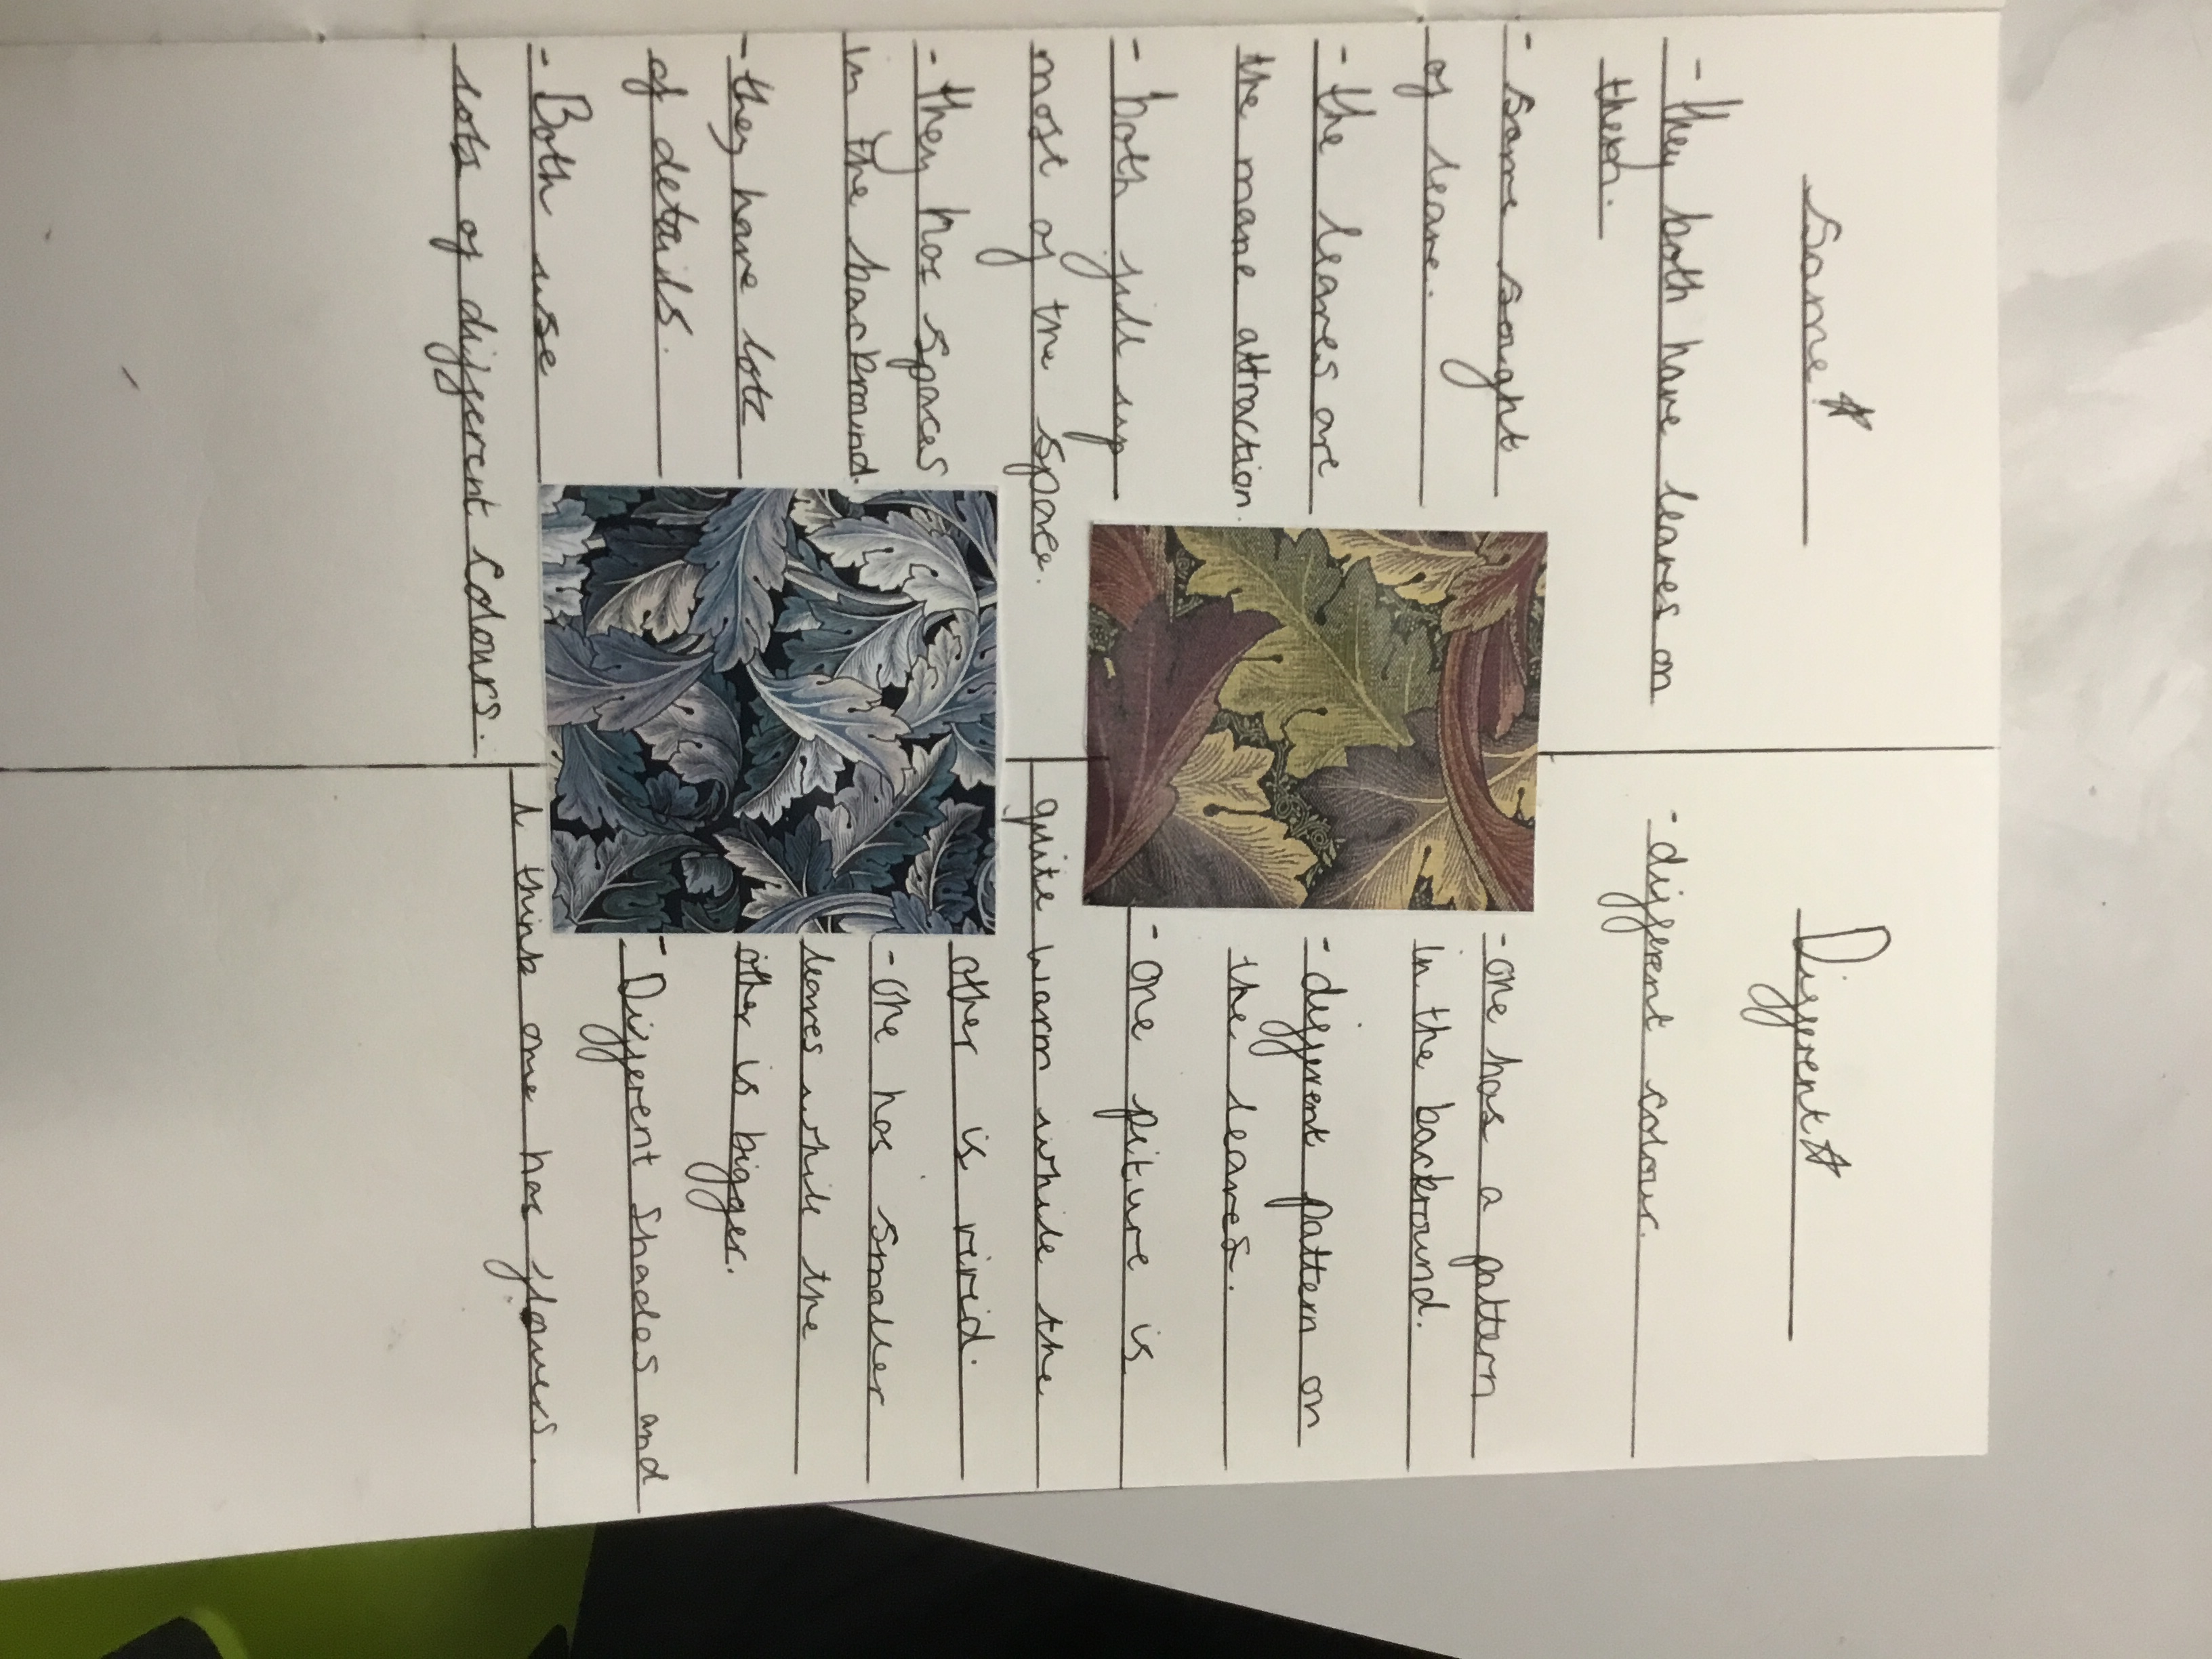 Same
- They both have leaves on
them.
- same sought
of leave.
- the leaves are
the mane attraction.
- both fill up
most of the space.
- they has spaces
in the backround.
- they have lots
of details.
- Both use
lots of different colours.
Different
- different colour.
- one has a pattern
in the backround.
- different pattern on
the leaves.
- one piture is
quite warm while the
other is vivid.
- One has smaller
leaves while the
other is bigger.
- Different shades and
I think one has flowers.